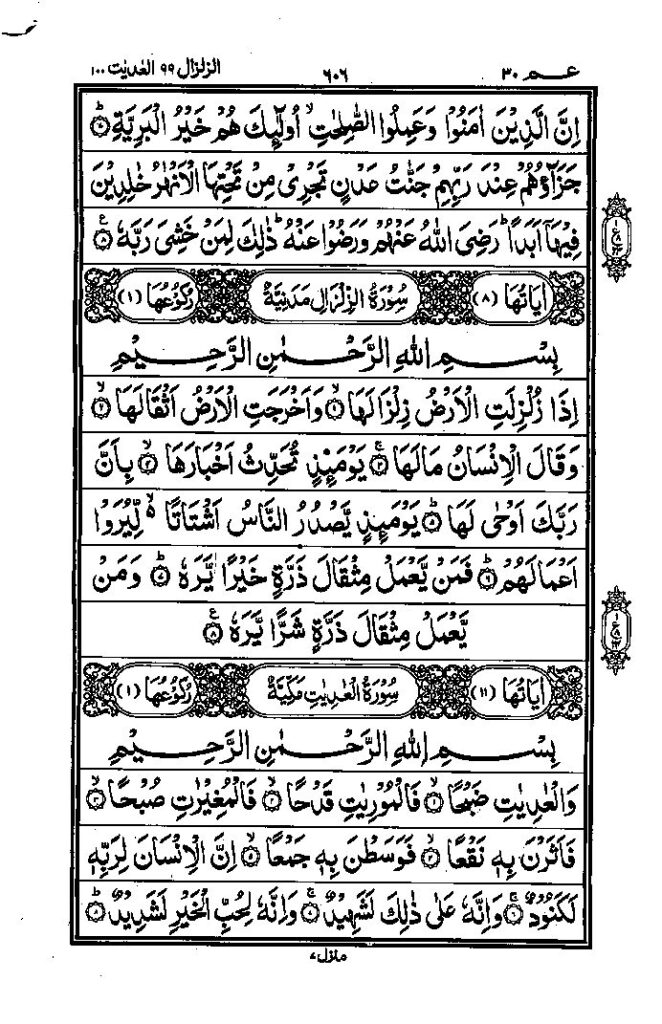 عـم ٣٠ ٦٠٦ الزلزال ٩٩ العٰديٰت ١٠٠
اِنَّ الَّذِيْنَ اٰمَنُوْا وَعَمِلُوا الصّٰلِحٰتِ ۙ اُولٰٓئِكَ هُمْ خَيْرُ الْبَرِيَّةِ ؕ﴿٧﴾
جَزَآؤُهُمْ عِنْدَ رَبِّهِمْ جَنّٰتُ عَدْنٍ تَجْرِىْ مِنْ تَحْتِهَا الْاَنْهٰرُ خٰلِدِيْنَ
فِيْهَاۤ اَبَدًا ؕ رَضِىَ اللّٰهُ عَنْهُمْ وَرَضُوْا عَنْهُ ؕ ذٰلِكَ لِمَنْ خَشِىَ رَبَّهٗ ﴿٨﴾ ع
اٰيَاتُهَا (٨) سُوْرَةُ الزِّلْزَالِ مَدَنِيَّةٌ رُكُوْعُهَا (١)
بِسْمِ اللّٰهِ الرَّحْمٰنِ الرَّحِيْمِ
اِذَا زُلْزِلَتِ الْاَرْضُ زِلْزَالَهَا ۙ﴿١﴾ وَاَخْرَجَتِ الْاَرْضُ اَثْقَالَهَا ۙ﴿٢﴾
وَقَالَ الْاِنْسَانُ مَا لَهَا ۚ﴿٣﴾ يَوْمَئِذٍ تُحَدِّثُ اَخْبَارَهَا ۙ﴿٤﴾ بِاَنَّ
رَبَّكَ اَوْحٰى لَهَا ؕ﴿٥﴾ يَوْمَئِذٍ يَّصْدُرُ النَّاسُ اَشْتَاتًا ۙ۬ لِّيُرَوْا
اَعْمَالَهُمْ ؕ﴿٦﴾ فَمَنْ يَّعْمَلْ مِثْقَالَ ذَرَّةٍ خَيْرًا يَّرَهٗ ؕ﴿٧﴾ وَمَنْ
يَّعْمَلْ مِثْقَالَ ذَرَّةٍ شَرًّا يَّرَهٗ ﴿٨﴾ ع
اٰيَاتُهَا (١١) سُوْرَةُ الْعٰدِيٰتِ مَكِّيَّةٌ رُكُوْعُهَا (١)
بِسْمِ اللّٰهِ الرَّحْمٰنِ الرَّحِيْمِ
وَالْعٰدِيٰتِ ضَبْحًا ۙ﴿١﴾ فَالْمُوْرِيٰتِ قَدْحًا ۙ﴿٢﴾ فَالْمُغِيْرٰتِ صُبْحًا ۙ﴿٣﴾
فَاَثَرْنَ بِهٖ نَقْعًا ۙ﴿٤﴾ فَوَسَطْنَ بِهٖ جَمْعًا ۙ﴿٥﴾ اِنَّ الْاِنْسَانَ لِرَبِّهٖ
لَكَنُوْدٌ ۚ﴿٦﴾ وَاِنَّهٗ عَلٰى ذٰلِكَ لَشَهِيْدٌ ۚ﴿٧﴾ وَاِنَّهٗ لِحُبِّ الْخَيْرِ لَشَدِيْدٌ ؕ﴿٨﴾
منزل ٧